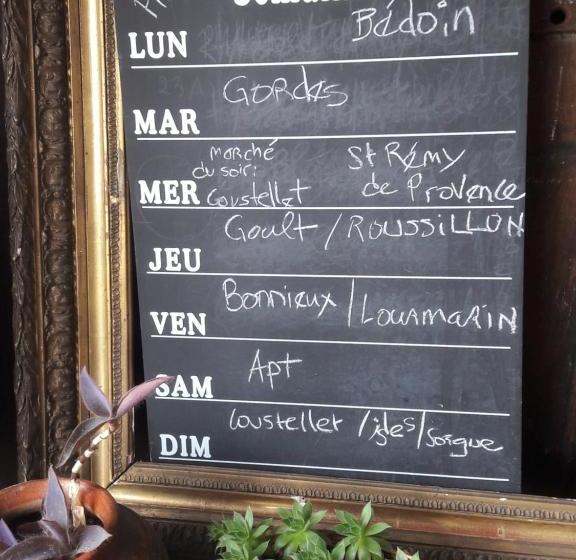 LUN Bédoin
MAR Gordes
MER marché du soir: Coustellet St Rémy de Provence
JEU Goult / ROUSSILLON
VEN Bonnieux / Lourmarin
SAM Apt
DIM Coustellet / isles / Sorgue